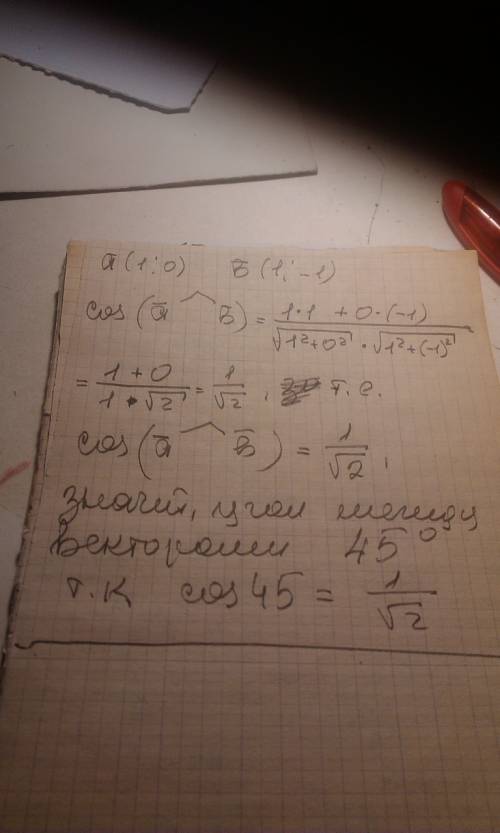 ā (1; 0) b̄ (1; -1)
cos(ā ^ b̄) = (1·1 + 0·(-1)) / (√(1²+0²) · √(1²+(-1)²))
= (1+0) / (1·√2) = 1/√2, т.е.
cos(ā ^ b̄) = 1/√2,
значит, угол между
векторами 45°
т.к cos 45 = 1/√2